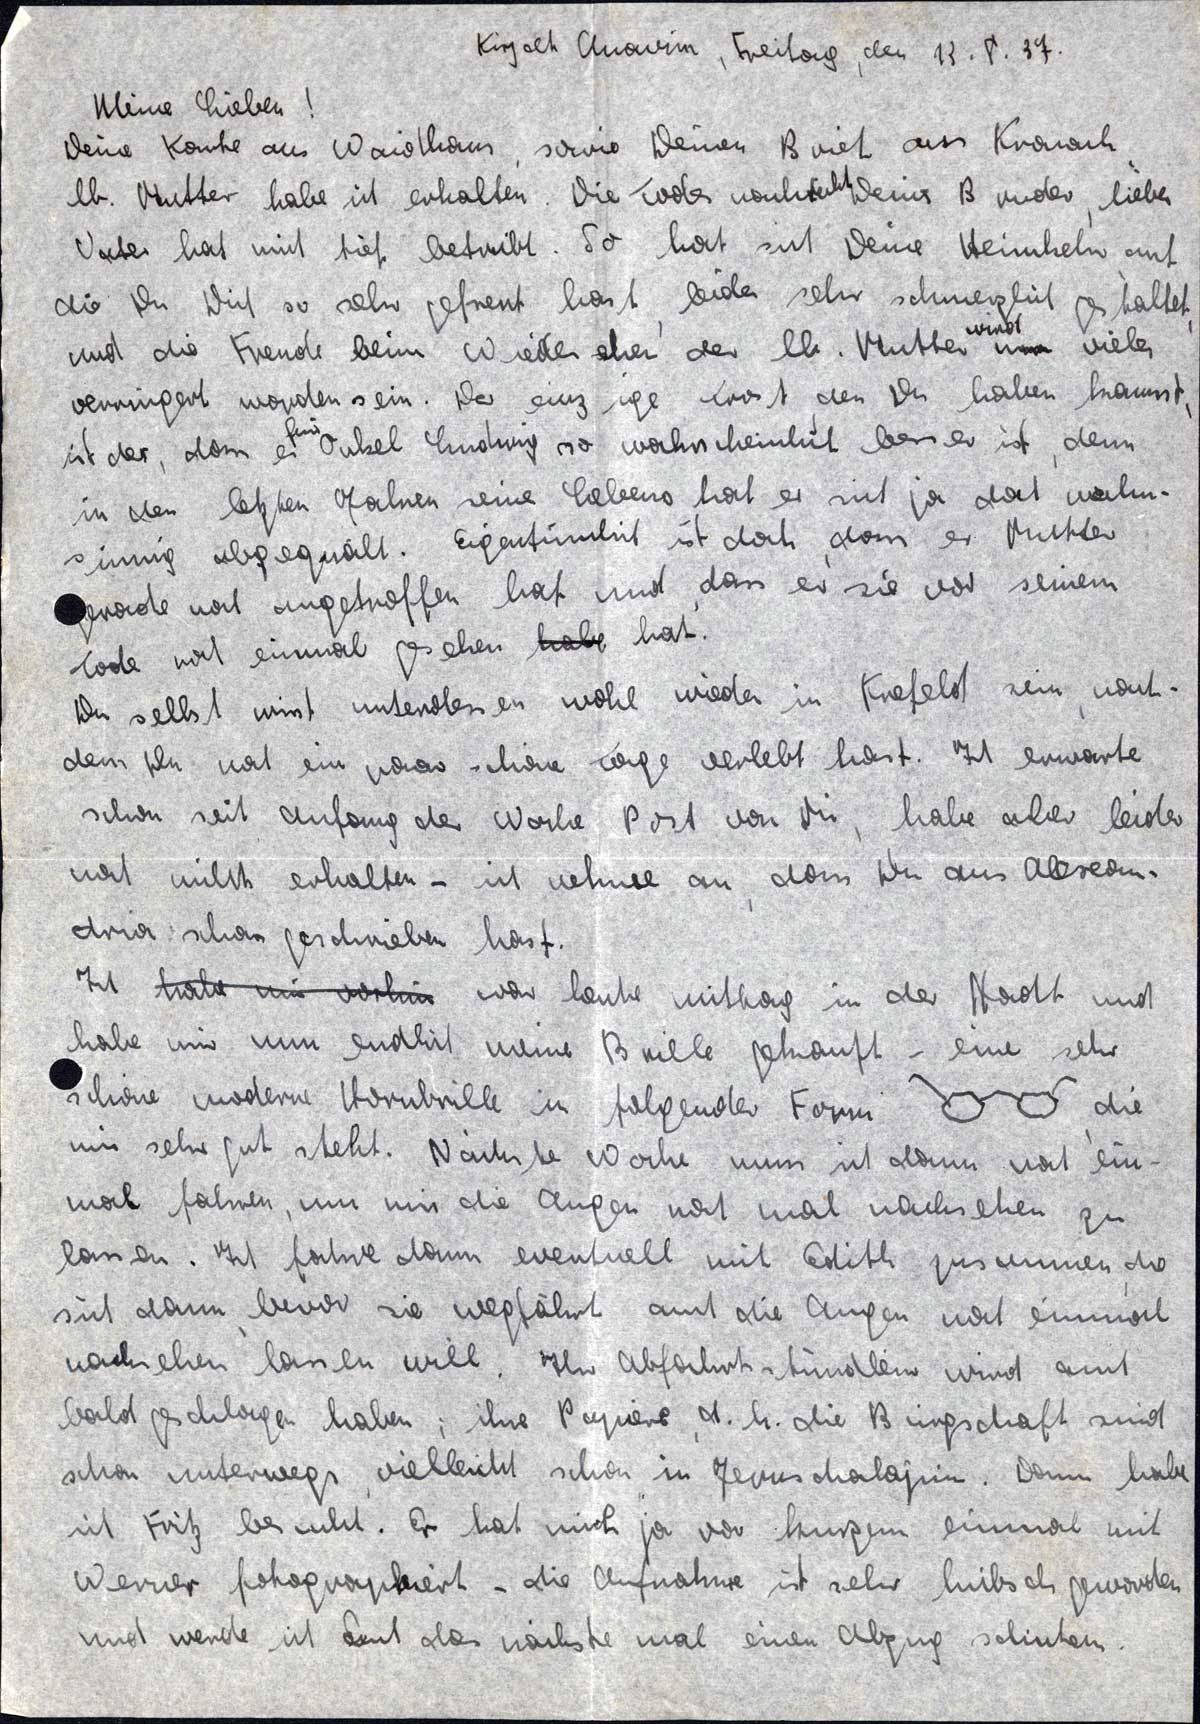 Kirjath Anavim, Freitag, den 13.8.37.
Meine Lieben!
Deine Karte aus Waidhaus, sowie Deinen Brief aus Kronach
lb. Mutter habe ich erhalten. Die Todesnachricht Deines Bruder, lieber
Vater hat mich tief betrübt. So hat sich Deine Heimkehr auf
die Du Dich so sehr gefreut hast, leider sehr schmerzlich gestaltet,
und die Freude beim Wiedersehen der lb. Mutter wird vieles
verringert worden sein. Der einzige Trost, den Du haben kannst,
ist der, dass es für Onkel Ludwig so wahrscheinlich besser ist, denn
in den letzten Jahren seine Lebens hat er sich ja doch wahn-
sinnig abgequält. Eigentümlich ist doch, dass er Mutter
gerade noch angetroffen hat und, dass er sie vor seinem
Tode noch einmal gesehen habe hat.
Du selbst wirst unterdessen wohl wieder in Krefeld sein, nach-
dem Du noch ein paar schöne Tage verlebt hast. Ich erwarte
schon seit Anfang der Woche Post von Dir, habe aber leider
noch nichts erhalten - ich nehme an, dass Du aus Alexan-
dria schon geschrieben hast.
Ich habe mir vorhin war heute mittag in der Stadt und
habe mir nun endlich meine Brille gekauft - eine sehr
schöne moderne Hornbrille in folgender Form, die
mir sehr gut steht. Nächste Woche muss ich dann noch ein-
mal fahren, um mir die Augen noch mal nachsehen zu
lassen. Ich fahre dann eventuell mit Edith zusammen, die
sich dann, bevor sie wegfährt auch die Augen noch einmal
nachsehen lassen will. Ihr Abfahrtsstündlein wird auch
bald geschlagen haben; ihre Papiere, d.h. die Bürgschaft sind
schon unterwegs, vielleicht schon in Jeruschalajim. Dann habe
ich Fritz besucht. Er hat mich ja vor kurzem einmal mit
Werner photographiert - die Aufnahme ist sehr hübsch geworden
und werde ich Euch das nächste mal einen Abzug schicken.